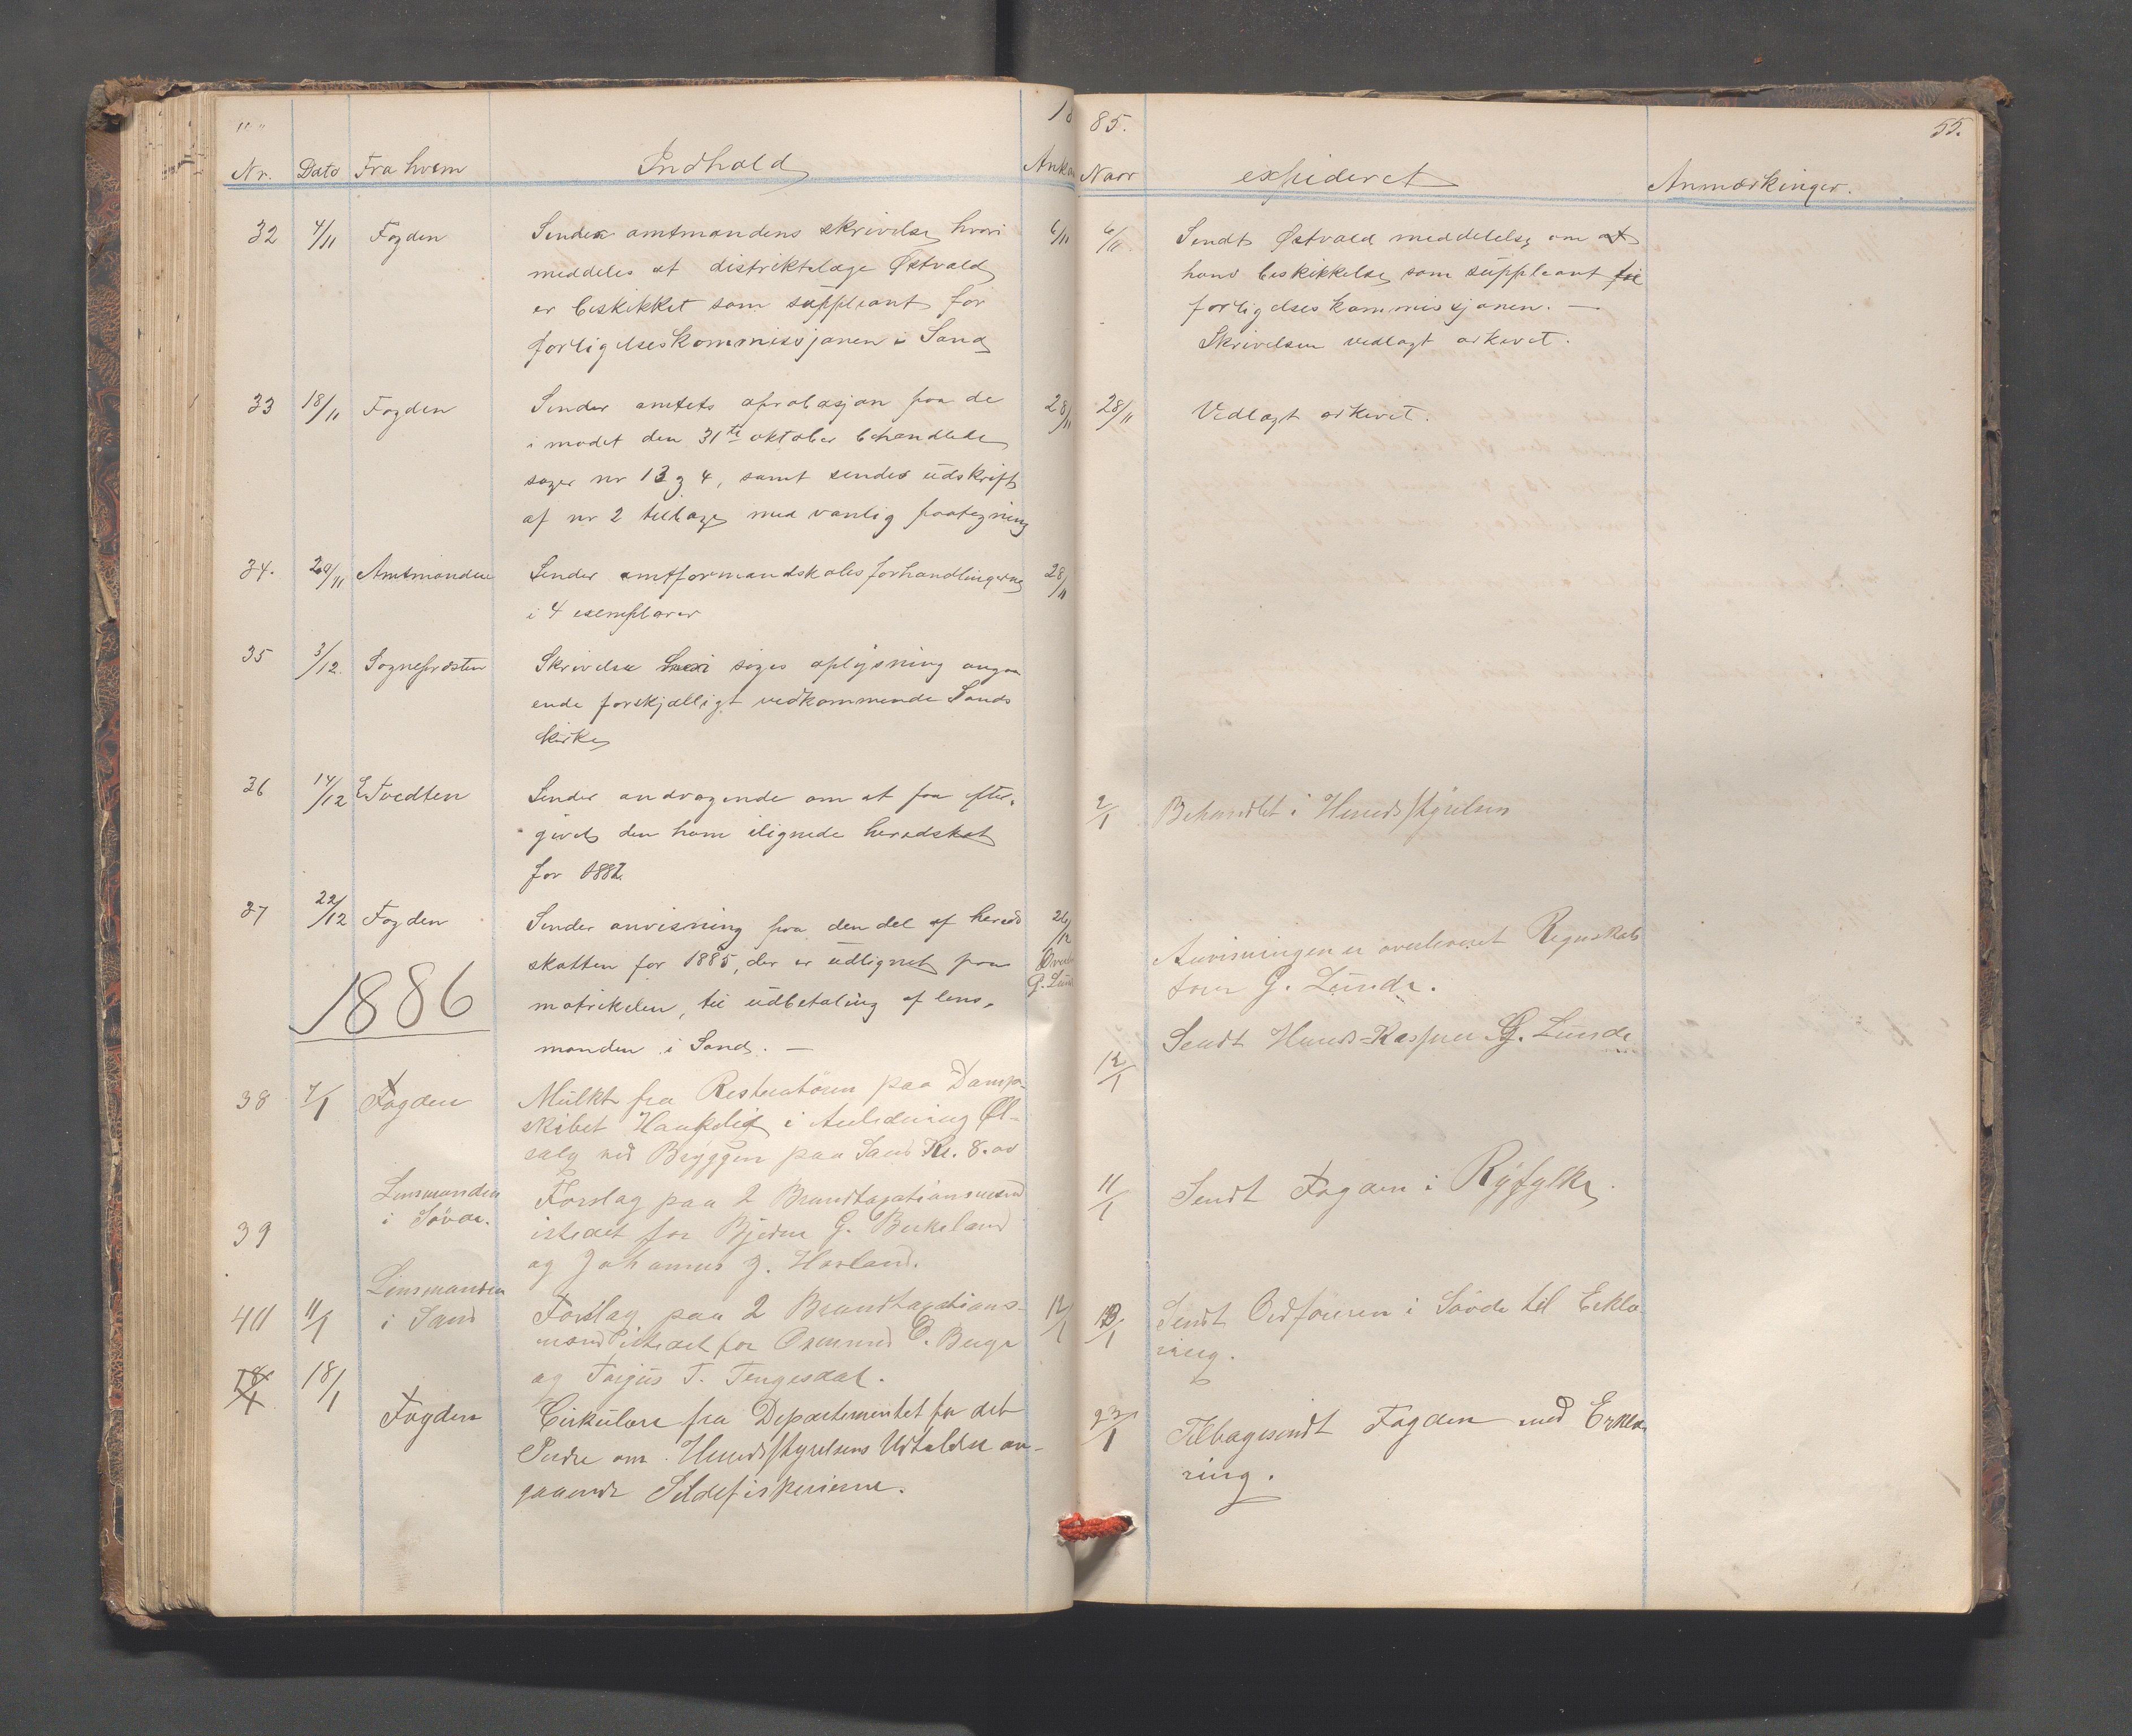 1885.
55.
Nr. Dato Fra hvem Indhold Ankom Naar expideret Anmærkinger.
32 4/11 Fogden Sender amtmandens skrivelse hvori 6/11
meddeles at distriktslæge Østvold
er beskikket som suppleant for
forligelseskommissjonen i Sand
6/11 Sendt Østvold meddelelse om at
hans beskikkelse som suppleant til
forligelseskommissjonen. —
Skrivelsen vedlagt arkivet.
33 18/11 Fogden Sender amtets aprobasjon paa de 28/11
i mødet den 31te oktober behandlede
sager nr 1 3 g 4, samt sendes udskrift
af nr 2 tilbage med vanlig paategning
28/11 Vedlagt arkivet.
34. 20/11 Amtmanden Sender amtformandskabsforhandlingerne 28/11
i 4 exemplarer
35 3/12. Sognepræsten Skrivelse hvori søges oplysning angaa
ende forskjælligt vedkommende Sands
kirke
36 14/12 E. Tvedten Sender andragende om at faa efter-
givet den ham ilignede heredskat
for 1882.
2/1 Behandlet i Heredsstyrelsen
37 22/12 Fogden Sender anvisning paa den del af hereds 26/12
skatten for 1885, der er udlignet paa
matrikelen, til udbetaling af lens-
manden i Sand. —
G. Lund
Anvisningen er overleveret Regnskabs
fører G. Lunde.
1886
38 7/1 Fogden Mulkt fra Restauratøren paa Damp-
skibet Haukelid i Anledning Øl-
salg ved Bryggen paa Sand Kr. 8.00
12/1 Sendt Hereds-Kasserer G. Lunde
39 Lensmanden
i Søvde.
Forslag paa 2 Brandtaxationsmænd
istedet for Bjørn G. Birkeland
og Johannes J. Havland.
11/1 Sendt Fogden i Ryfylke.
40 11/1 Lensmanden
i Sand
Forslag paa 2 Brandtaxations- 12/1
mænd istedet for Osmund O. Berge
og Torjus T. Tengesdal.
13/1 Sendt Ordføreren i Søvde til Erklæ-
ring.
18/1 18/1 Fogden Cirkulære fra Departementet for det
Indre om Heredsstyrelsens Udtalelse an-
gaaende Sildefiskerierne.
23/1 Tilbagesendt Fogden med Erklæ
ring.